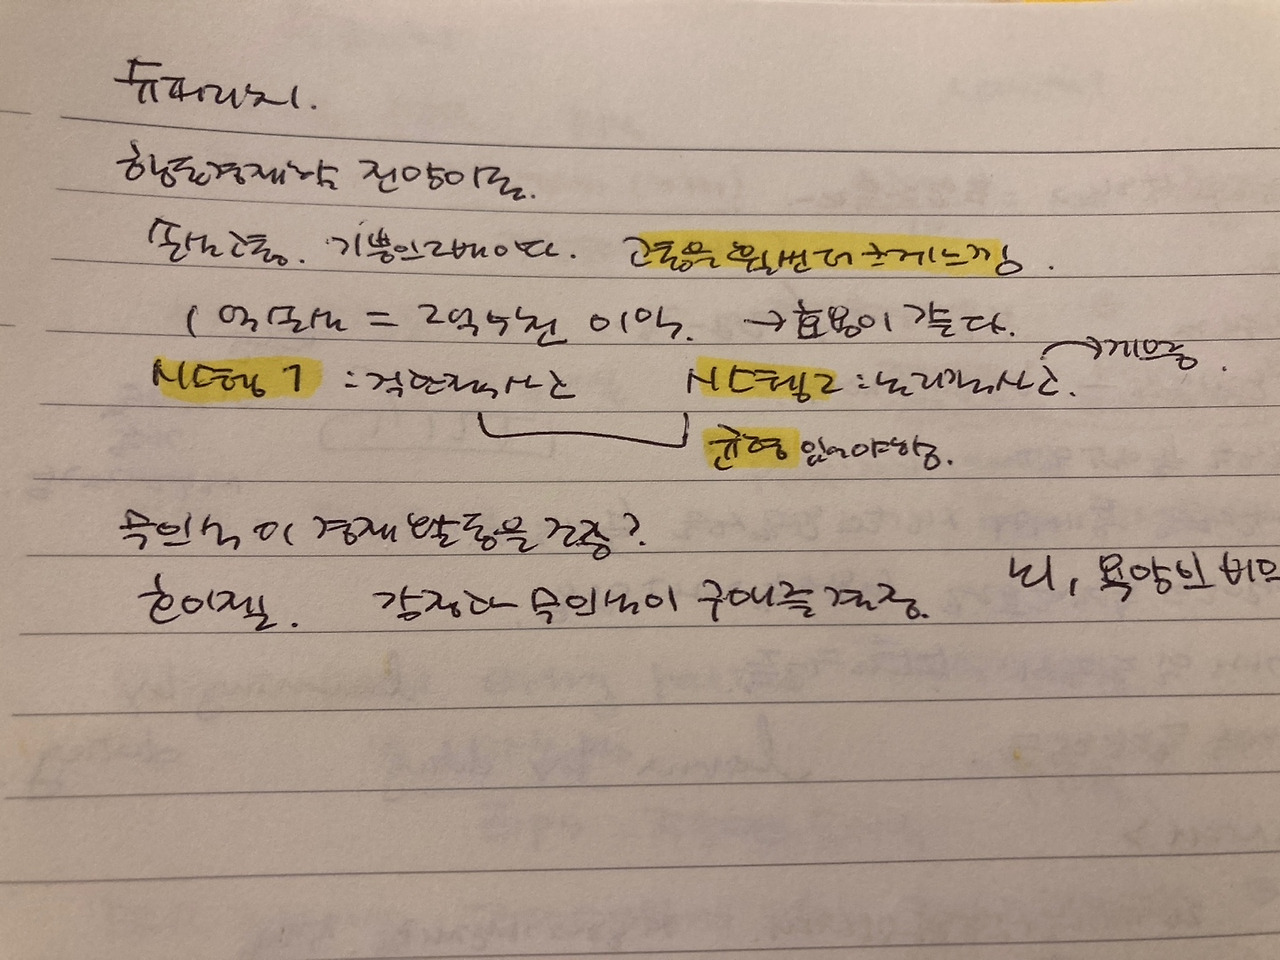 행동경제학 전망이론.
손실고통. 기쁨의 2배이다. 고통을 훨씬 더 크게 느낌.
1억 손실 = 2억 5천 이익. → 효용이 같다.
시스템 1 : 직관적 사고 시스템 2 : 논리적 사고. → 게으름.
균형 있어야 함.
무의식이 경제활동을 결정?
감정과 무의식이 구매를 결정. 뇌, 욕망의